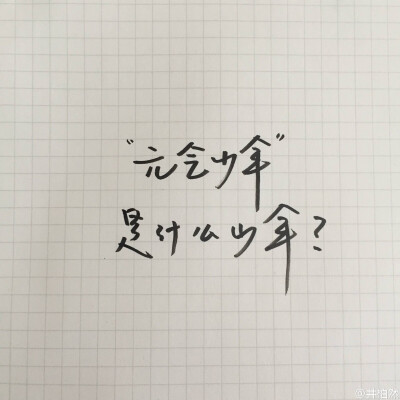 “元气少年”
是什么少年?
@井柏然